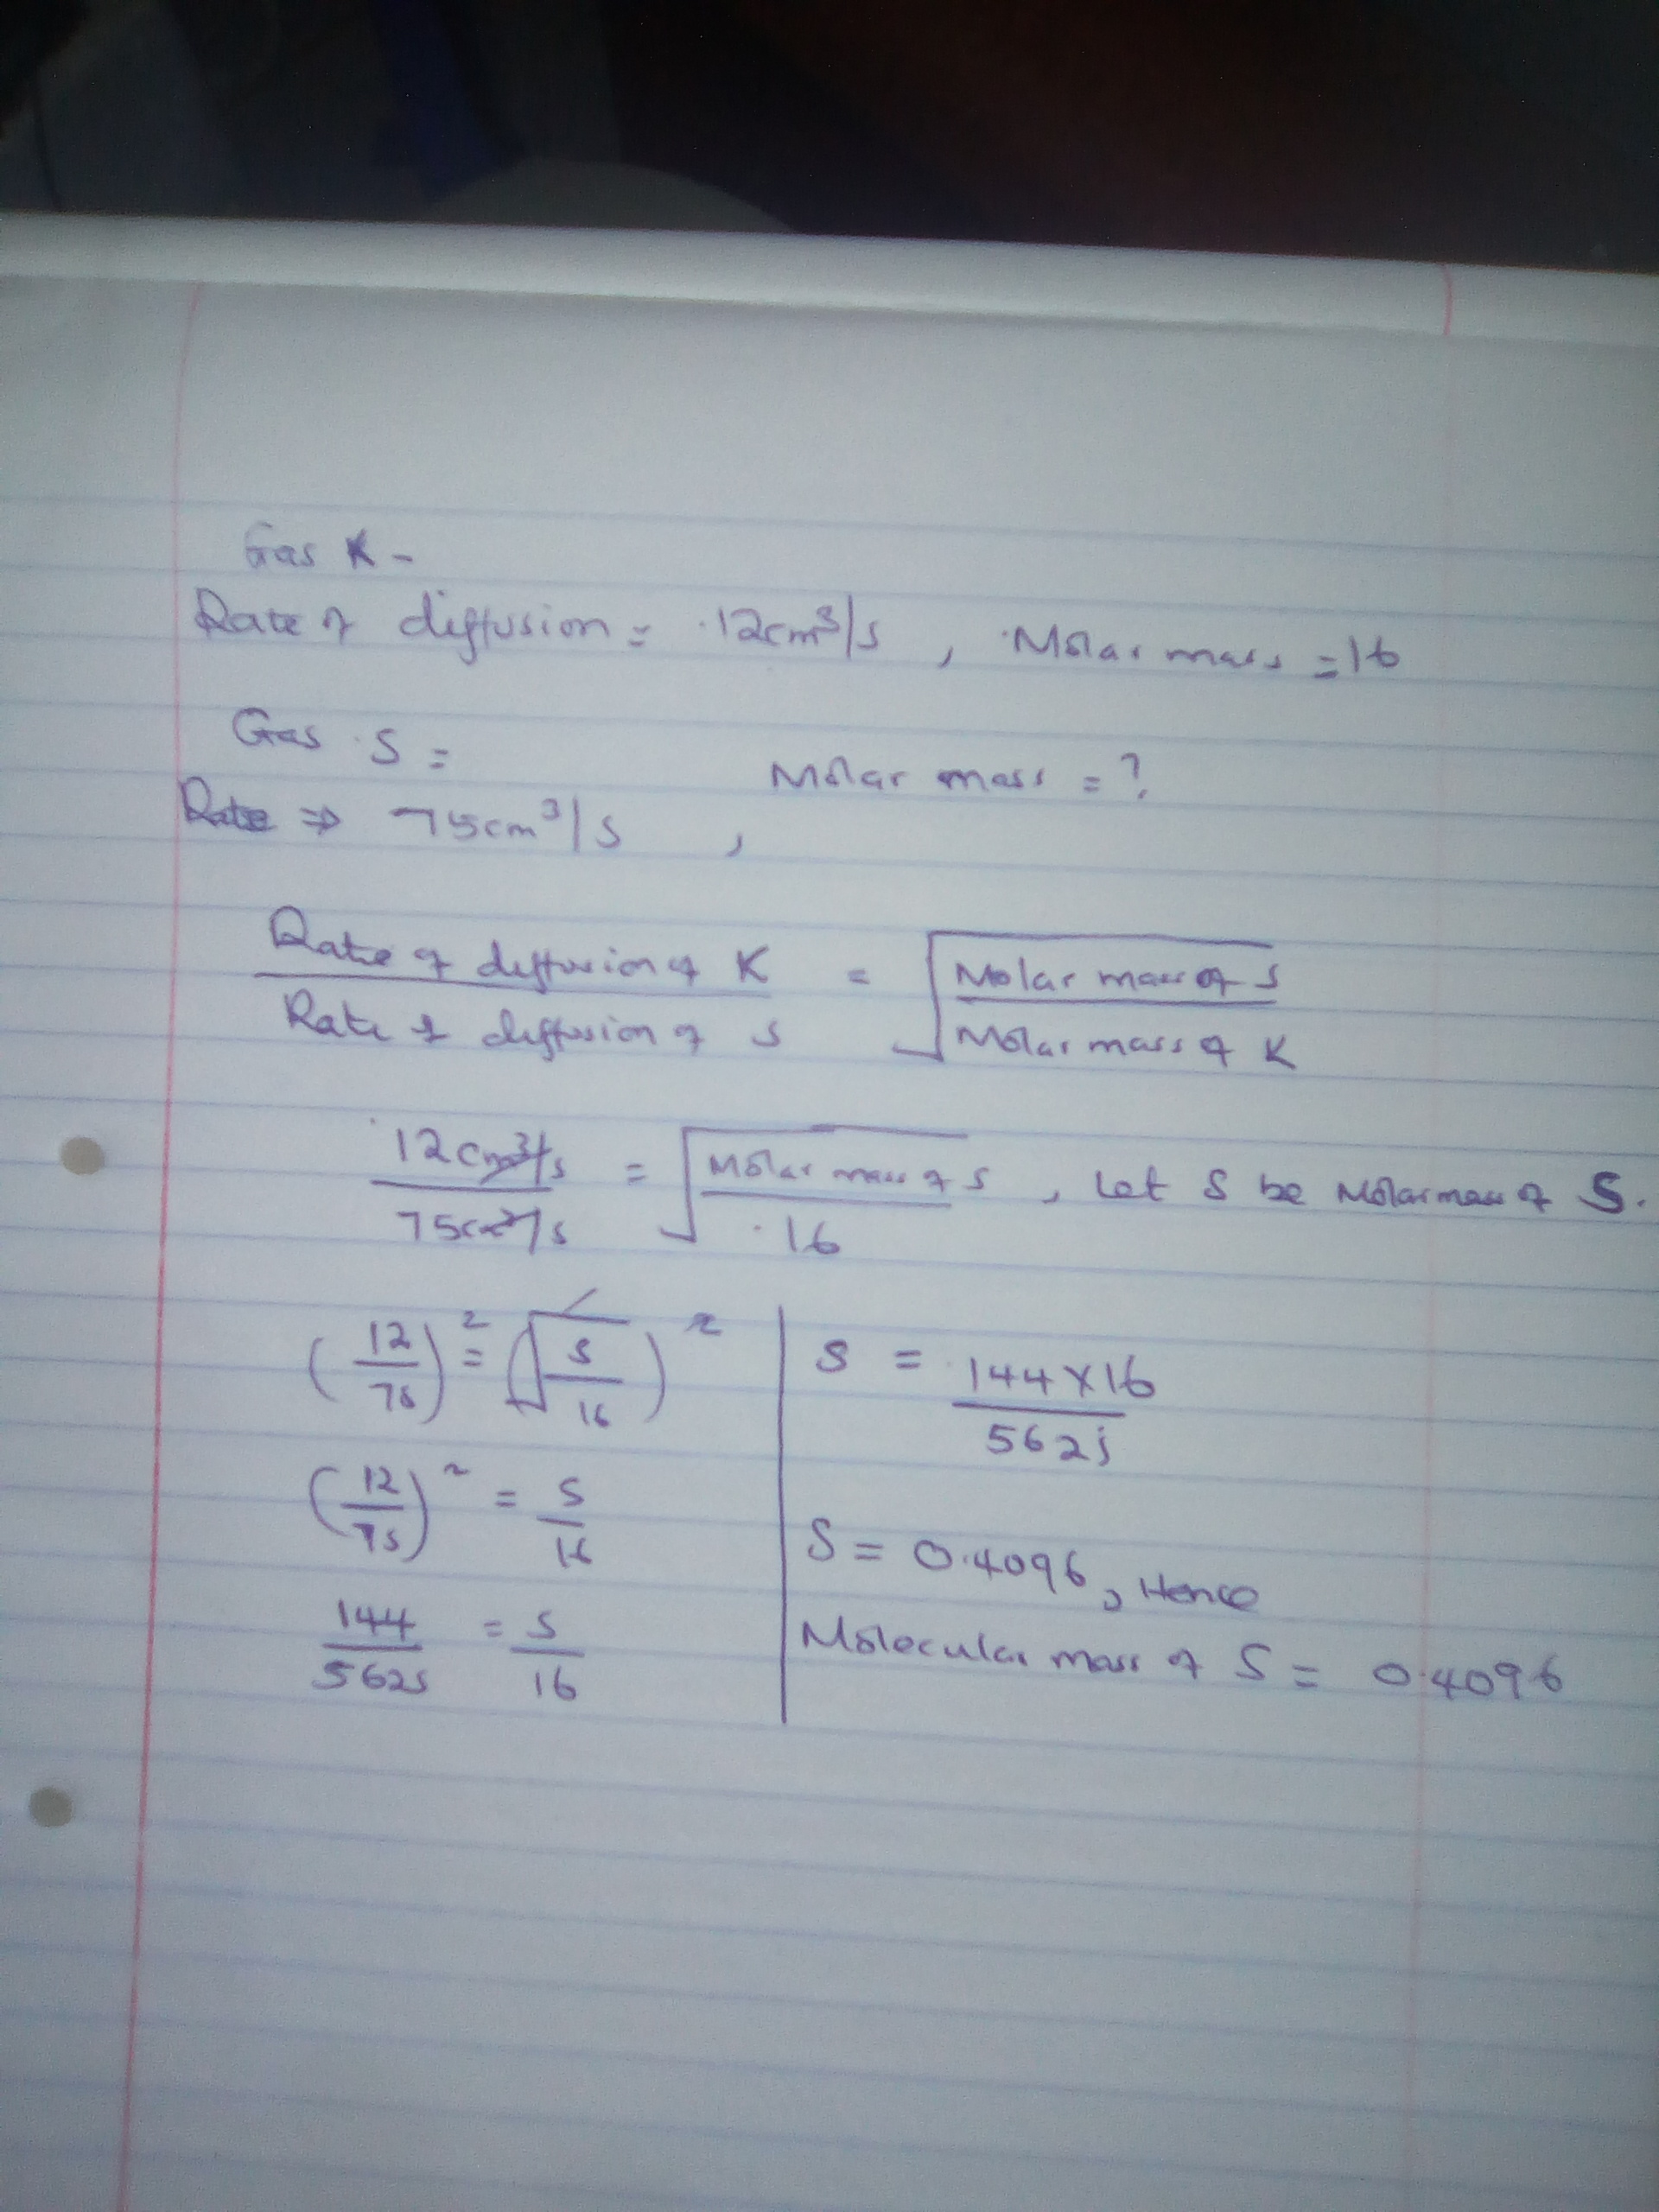 Gas K -
Rate of diffusion = 12cm³/s , Molar mass = 16
Gas S =
Molar mass = ?
Rate ⇒ 75cm³/s ,
Rate of diffusion of K / Rate of diffusion of S = √(Molar mass of S / Molar mass of K)
12cm³/s / 75cm³/s = √(Molar mass of S / 16) , Let S be Molar mass of S.
(12/75)² = (√(S/16))²
(12/75)² = S/16
144/5625 = S/16
S = 144 × 16 / 5625
S = 0.4096, Hence
Molecular mass of S = 0.4096